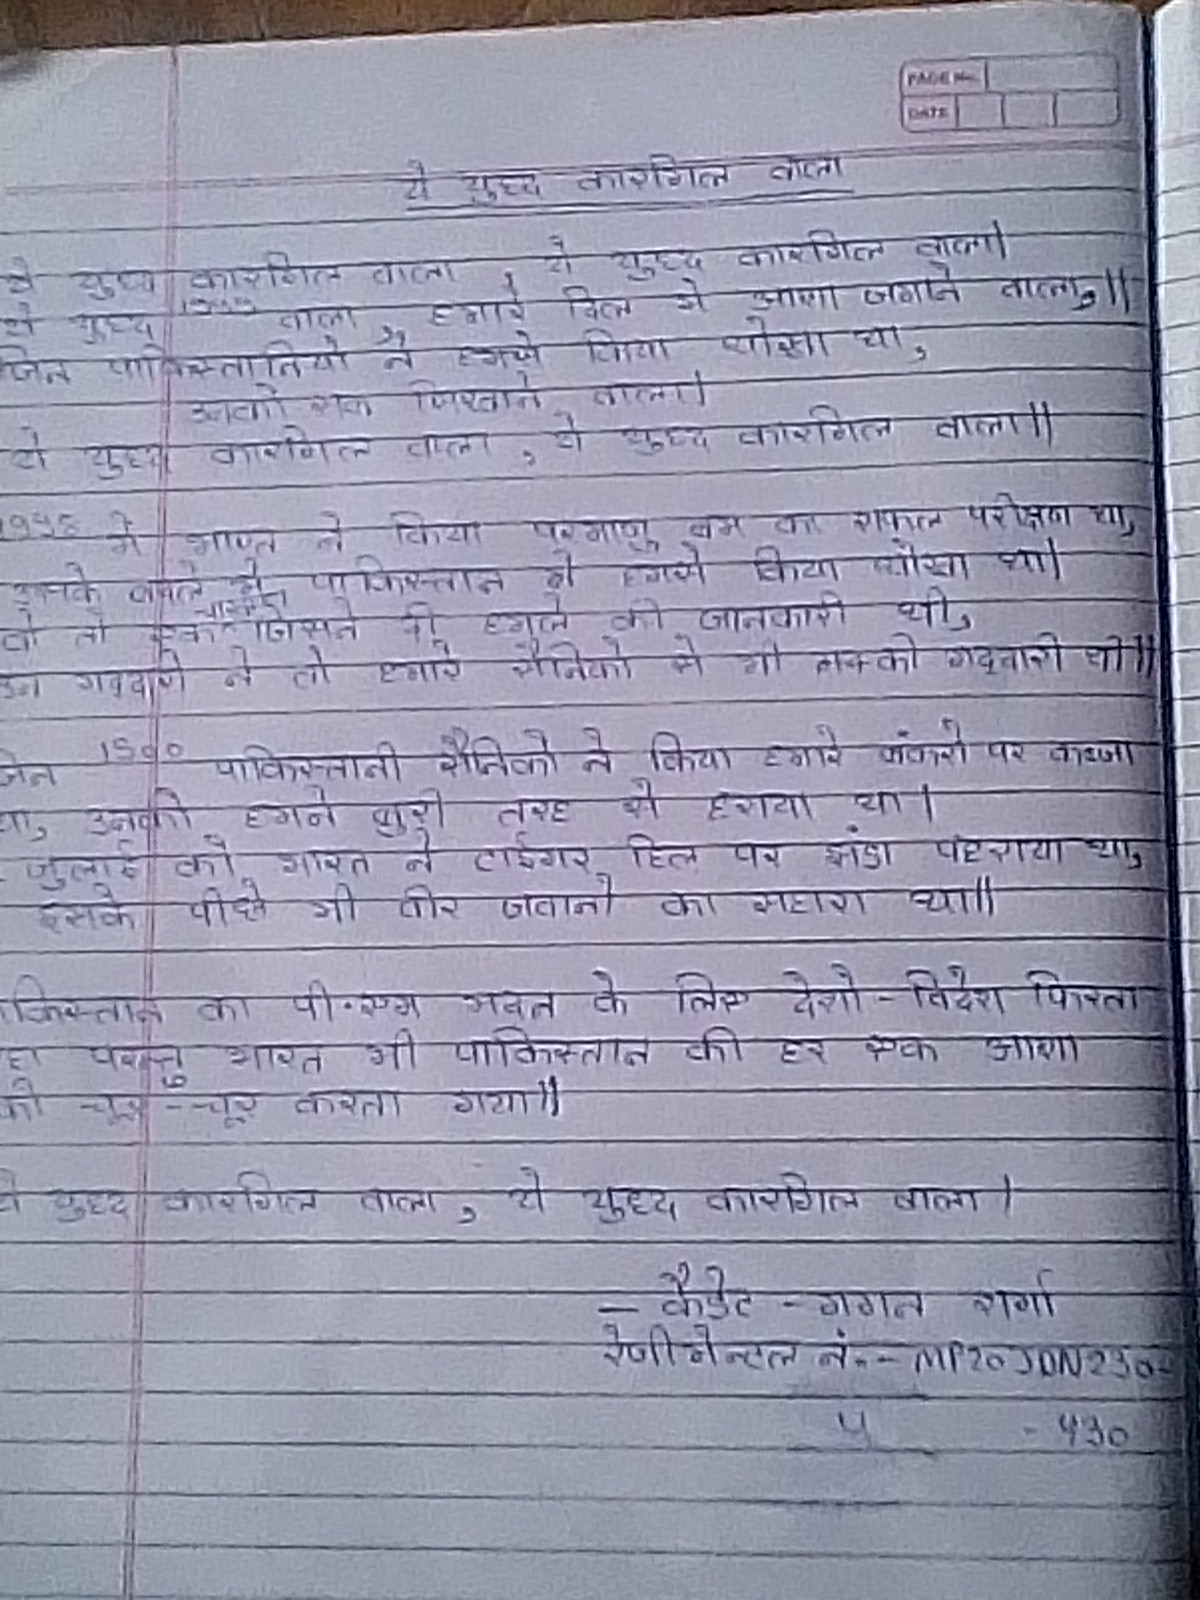 PAGE No.
DATE
ये युध्द कारगिल वाला
ये युध्द कारगिल वाला, ये युध्द कारगिल वाला।
ये युध्द 1999 वाला, हमारे दिल मे आशा जगाने वाला,॥
जिन पाकिस्तानियो ने हमसे किया धोखा था,
उनको सिखाने वाला।
ये युध्द कारगिल वाला, ये युध्द कारगिल वाला॥
1998 मे भारत ने किया परमाणु बम का सफल परीक्षण था,
पाकिस्तान ने हमसे किया धोखा था।
वो तो एक चरवाहा जिसने दी हमले की जानकारी थी,
उन गद्दारो ने तो हमारे सैनिको से भी गद्दारी थी॥
जिन 1500 पाकिस्तानी सैनिको ने किया हमारे बंकरो पर कब्जा
था, उनको हमने बुरी तरह से हराया था।
जुलाई को भारत ने टाईगर हिल पर झंडा फहराया था,
इसके पीछे भी वीर जवानो का सहारा था॥
किस्तान का पी.एम मदत के लिए देशो-विदेश फिरता
रहा परन्तु भारत भी पाकिस्तान की हर एक आशा
को चूर-चूर करता गया॥
ये युध्द कारगिल वाला, ये युध्द कारगिल वाला।
- कैडेट - गगन शर्मा
रेजीमेन्टल नं.-
- 430